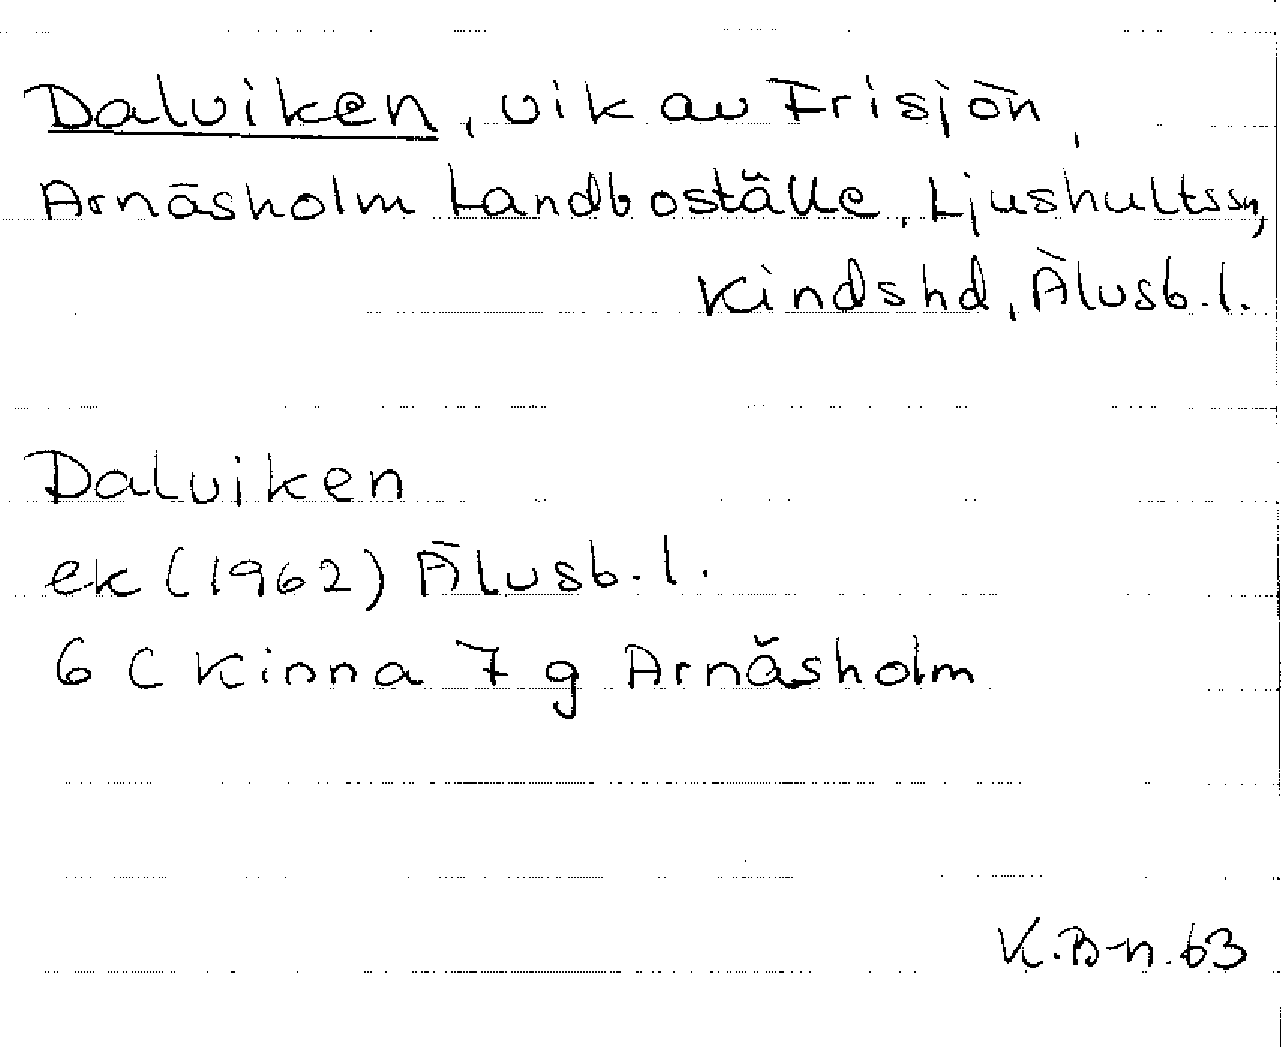 Dalviken, vik av Frisjön,
Arnäsholm Landboställe, Ljushultssn,
Kindshd, Älvsb.l.
Dalviken
ek (1962) Älvsb.l.
6 C Kinna 7 g Arnäsholm
K.B-n.63